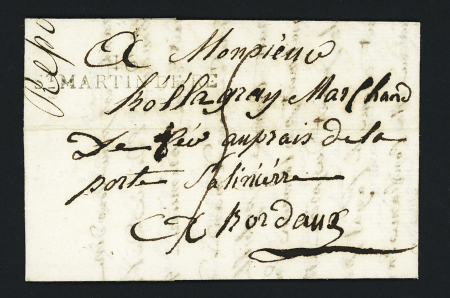 A Monsieur
ST MARTIN DE RE
hollagray Marchand
De fer auprais de la
porte Salinierre
A Bordaux